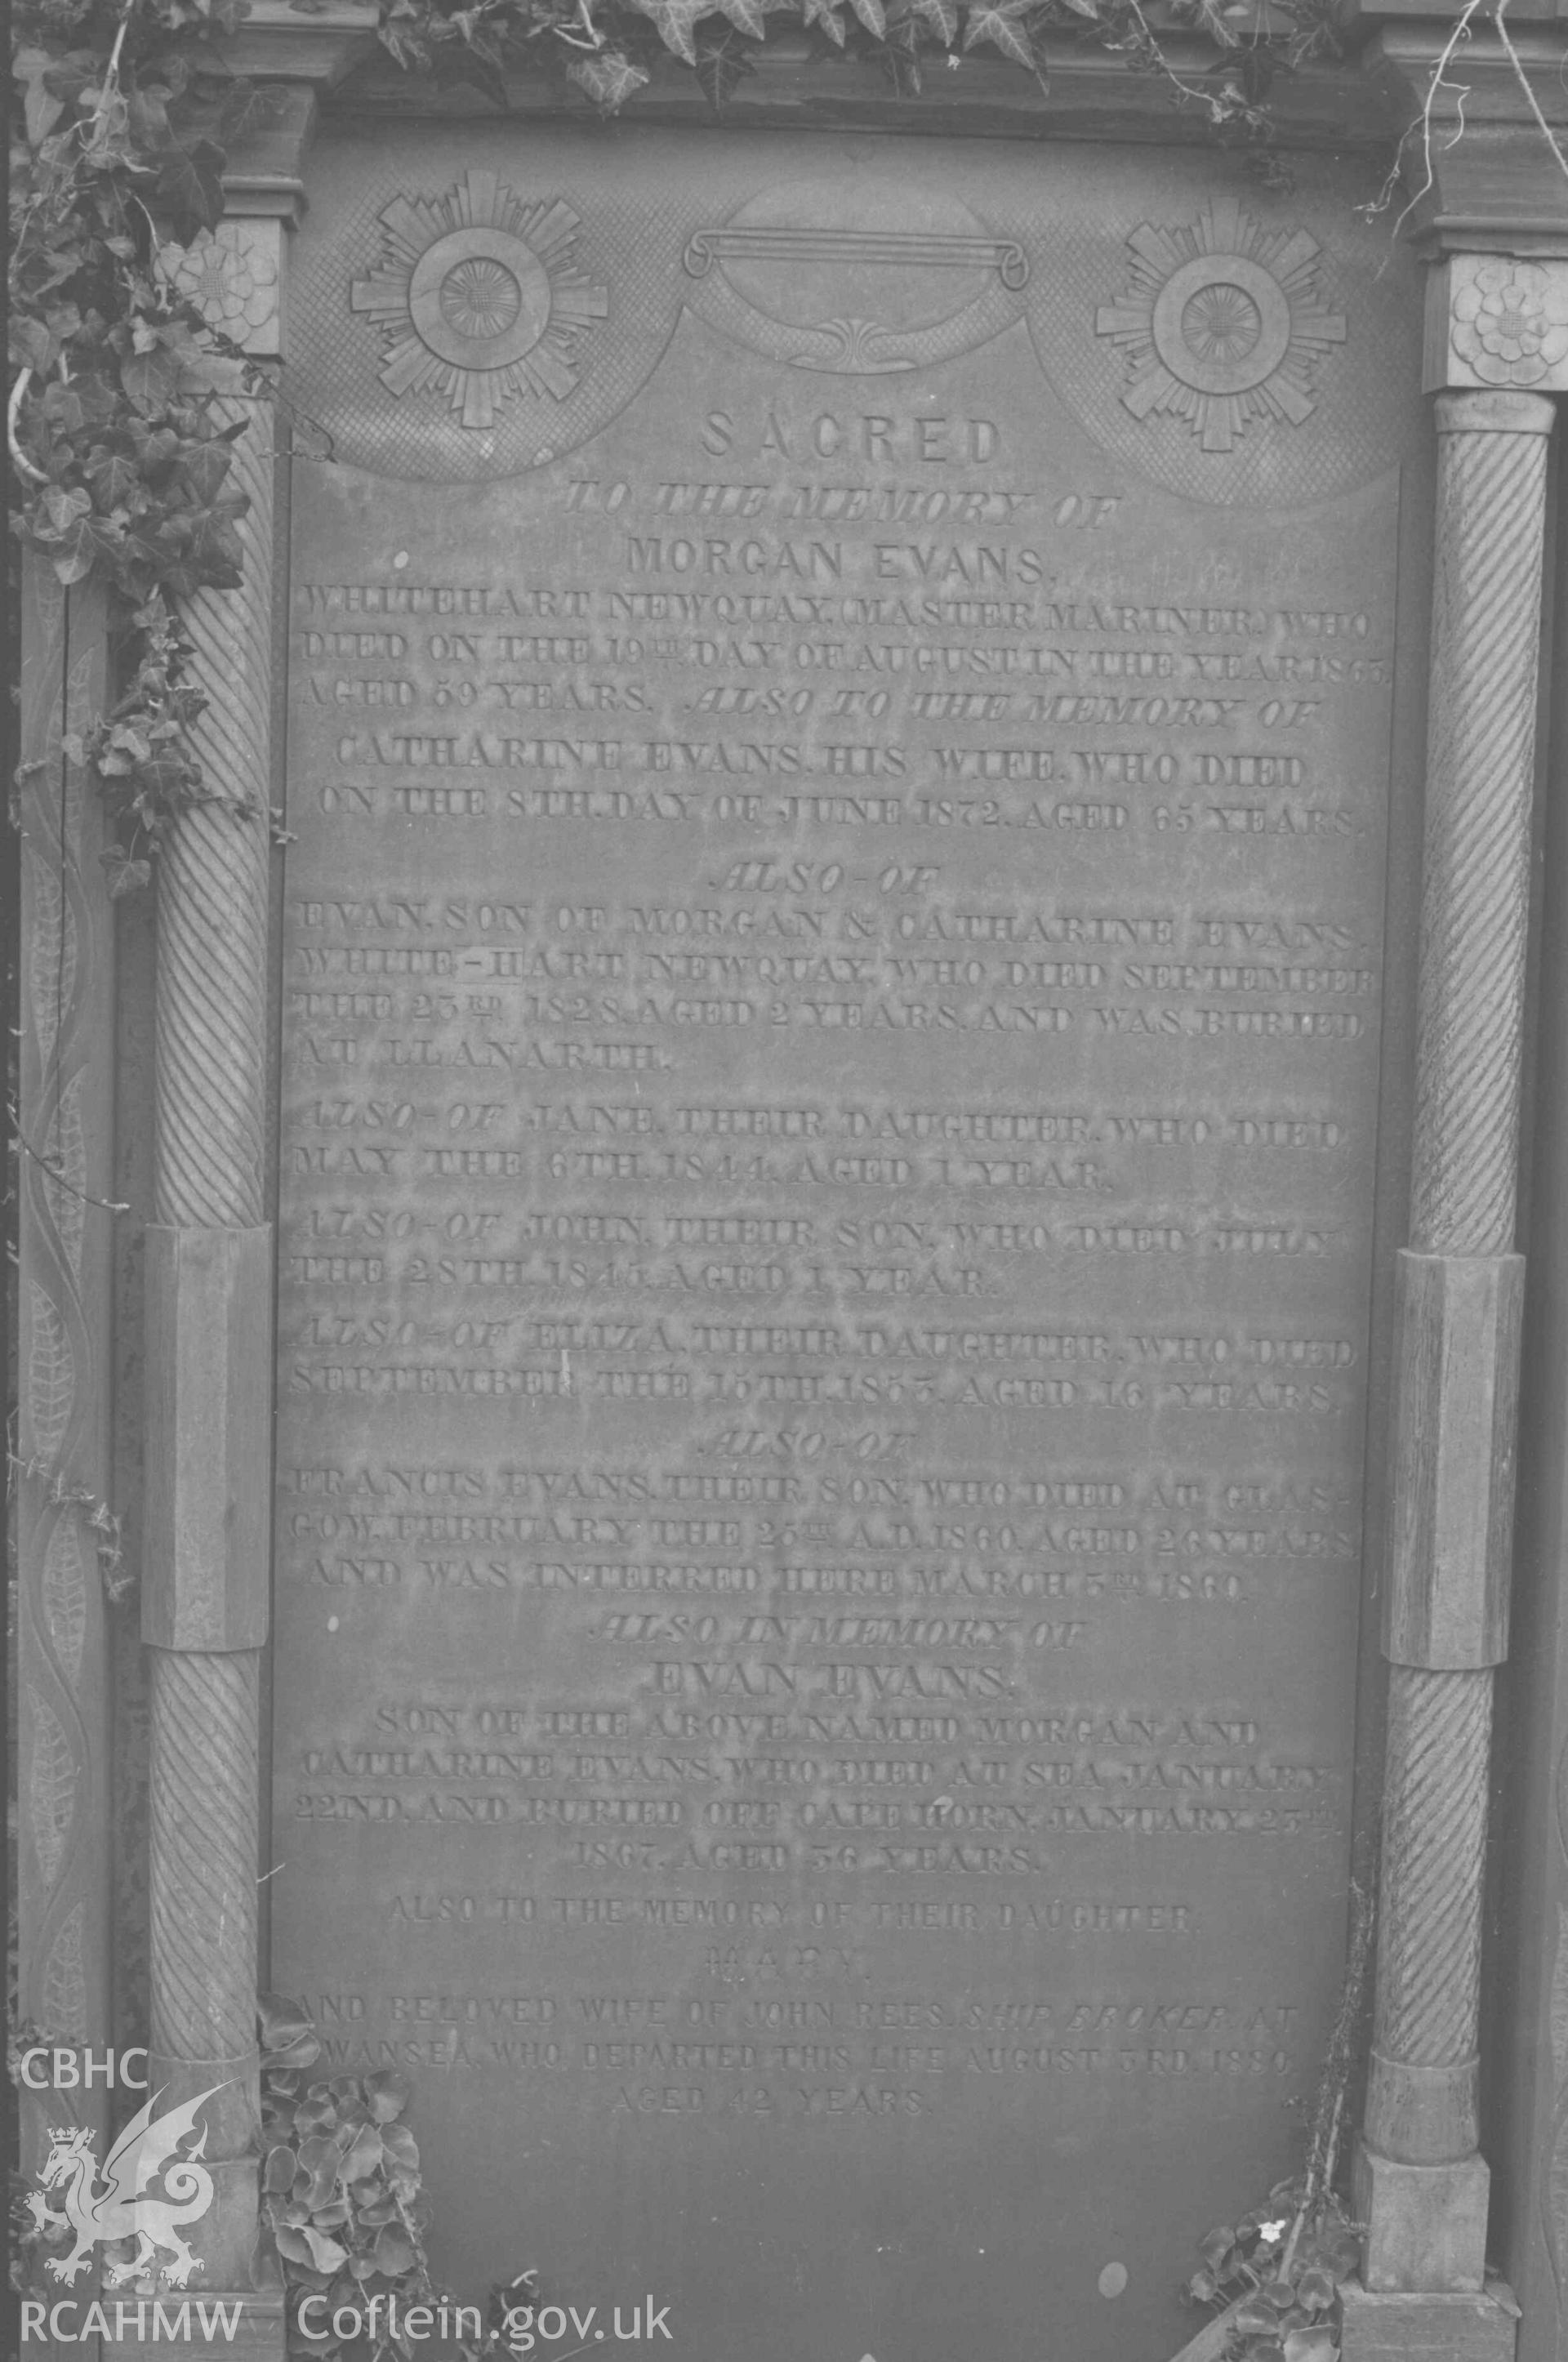 SACRED
TO THE MEMORY OF
MORGAN EVANS.
WHITEHART NEWQUAY, (MASTER MARINER,) WHO
DIED ON THE 19TH DAY OF AUGUST IN THE YEAR 1863.
AGED 59 YEARS. ALSO TO THE MEMORY OF
CATHARINE EVANS. HIS WIFE. WHO DIED
ON THE 8TH. DAY OF JUNE 1872. AGED 65 YEARS.
ALSO-OF
EVAN, SON OF MORGAN & CATHARINE EVANS.
WHITE-HART NEWQUAY. WHO DIED SEPTEMBER
THE 23RD 1828. AGED 2 YEARS. AND WAS BURIED
AT LLANARTH.
ALSO-OF JANE. THEIR DAUGHTER. WHO DIED
MAY THE 6TH. 1844. AGED 1 YEAR.
ALSO-OF JOHN. THEIR SON. WHO DIED JULY
THE 28TH. AGED 1 YEAR.
ALSO-OF ELIZA. THEIR DAUGHTER. WHO DIED
SEPTEMBER THE 15TH. 1853. AGED 16 YEARS.
ALSO-OF
FRANCIS EVANS. THEIR SON. WHO DIED AT GLAS-
GOW. FEBRUARY THE 25TH A.D. 1860. AGED 26 YEARS.
AND WAS INTERRED HERE MARCH 3RD 1860.
ALSO IN MEMORY OF
EVAN EVANS.
SON OF THE ABOVE NAMED MORGAN AND
CATHARINE EVANS. WHO DIED AT SEA JANUARY
22ND. AND BURIED OFF CAPE HORN. JANUARY
1867. AGED 36 YEARS.
ALSO TO THE MEMORY OF THEIR DAUGHTER.
MARY.
AND BELOVED WIFE OF JOHN REES. SHIP BROKER. AT
SWANSEA. WHO DEPARTED THIS LIFE AUGUST 3RD. 1880
AGED 42 YEARS.
CBHC
RCAHMW
Coflein.gov.uk